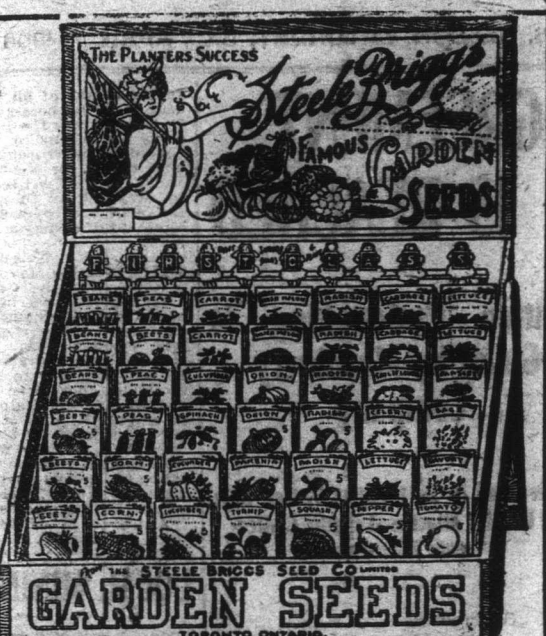 THE PLANTERS SUCCESS
Steele Briggs
FAMOUS GARDEN
SEEDS
BEANS PEAS CARROT RADISH CABBAGE LETTUCE
BEANS BEETS CARROT RADISH CABBAGE LETTUCE
BEANS PEAS ONION RADISH
BEET PEAS SPINACH ONION RADISH CELERY SAGE
BEETS CORN CUCUMBER PARSNIP RADISH LETTUCE
BEET CORN CUCUMBER TURNIP SQUASH PEPPER TOMATO
From THE STEELE BRIGGS SEED CO LIMITED
GARDEN SEEDS
TORONTO ONTARIO.